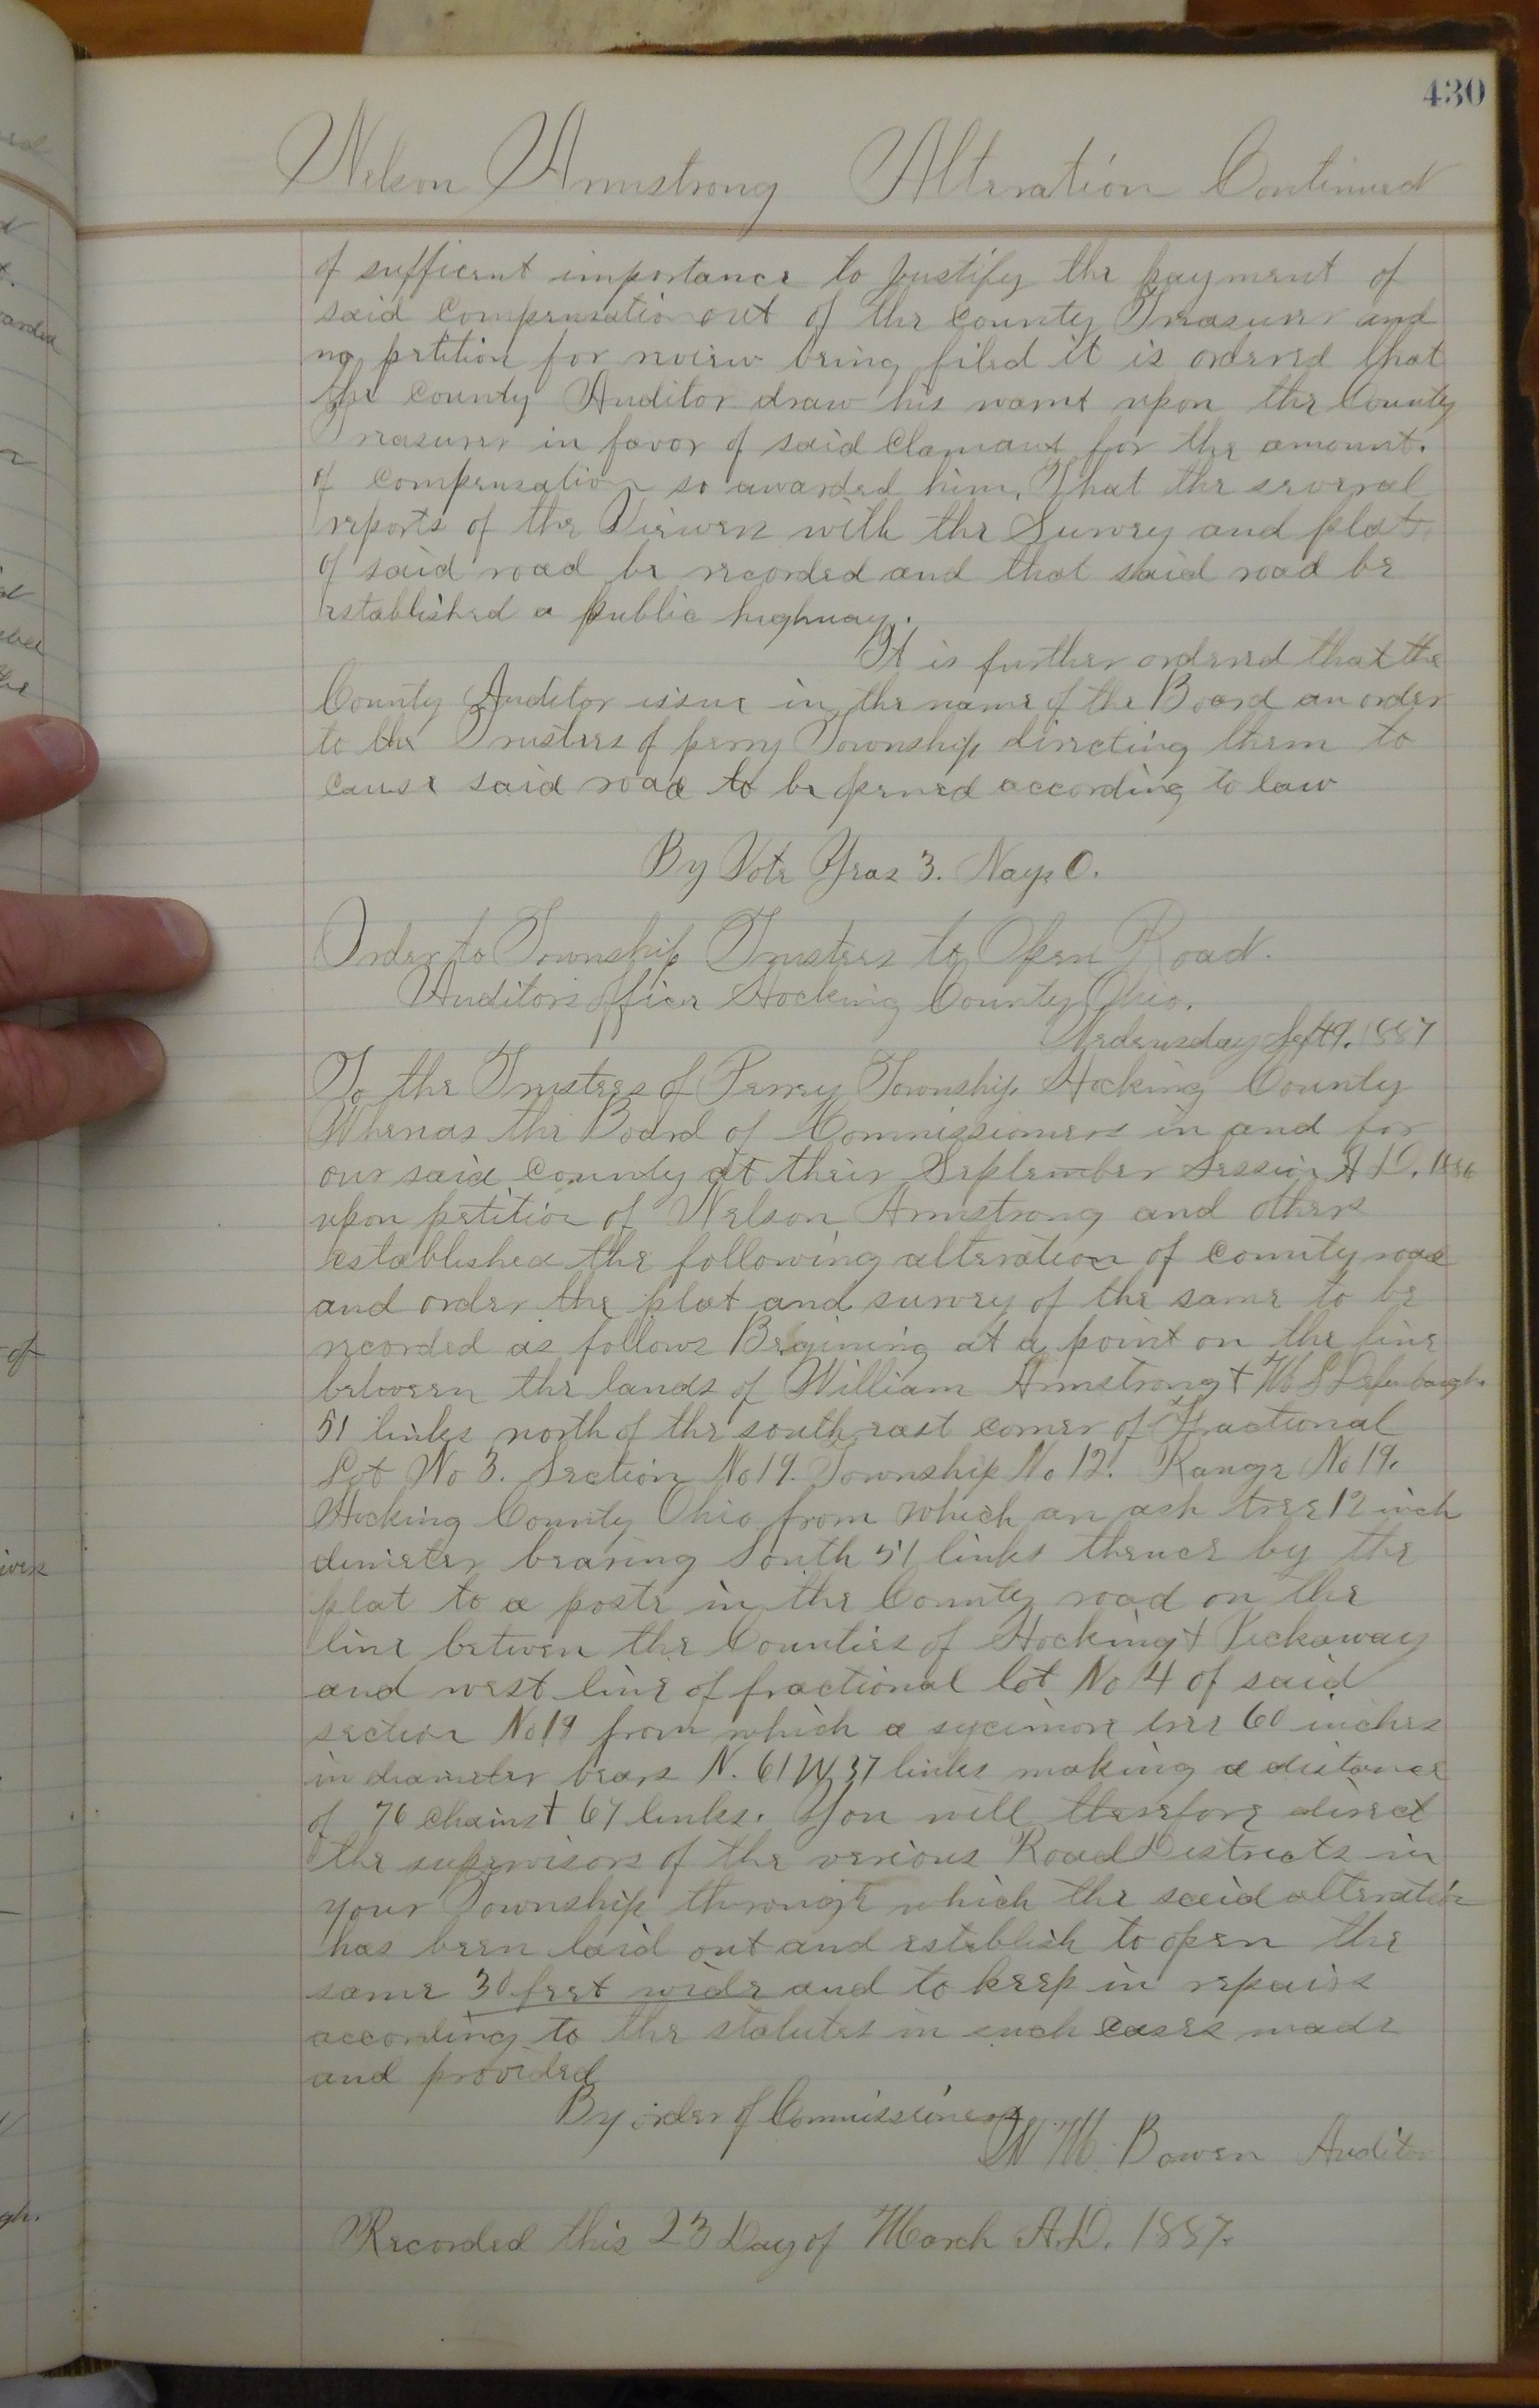 430
Nelson Armstrong Alteration Continued
of sufficent importance to justify the payment of
said compensation out of the county Treasurer and
no petition for review being filed it is ordered that
the county Auditor draw his warnt upon the County
Treasurer in favor of said Clamant for the amount.
of compensation so awarded him, That the several
reports of the Viewers with the Survey and plat
of said road be recorded and that said road be
established a public highway.
It is further ordered that the
County Auditor issue in the name of the Board an order
to the Trustees of perry Township directing them to
cause said road to be opened according to law
By Vote Yeas 3. Nays 0.
Order to Township Trustees to Open Road.
Auditors office Hocking County Ohio.
Wedensday Sept 1887
To the Trustees of Perry Township Hocking County
Whereas the Board of Commissioners in and for
our said county at their September Session A D. 1886
upon petition of Nelson Armstrong and others
established the following alteration of county road
and order the plat and survey of the same to be
recorded as follows Begining at a point on the line
between the lands of William Armstrong +
51 links north of the south east corner of Fractional
Lot No 3. Section No 19. Township No 12. Range No 19.
Hocking County Ohio from which an ash tree 12 inch
dimeter bearing South 51 links thence by the
plat to a poste in the County road on the
line betwen the Counties of Hocking + Pickaway
and west line of fractional lot No 4 of said
section No 19 from which a sycimore tree 60 inches
in diameter bears N. 61 W 37 links making a distance
of 76 chains + 67 links. You will therefore direct
the supervisors of the verious Road Districts in
your Township through which the said alteration
has been laid out and establish to open the
same 30 feet wide and to keep in repairs
according to the statutes in such cases made
and provided
By order of Commissioners
W M. Bowen Auditor
Recorded this 23 Day of March A.D. 1887.